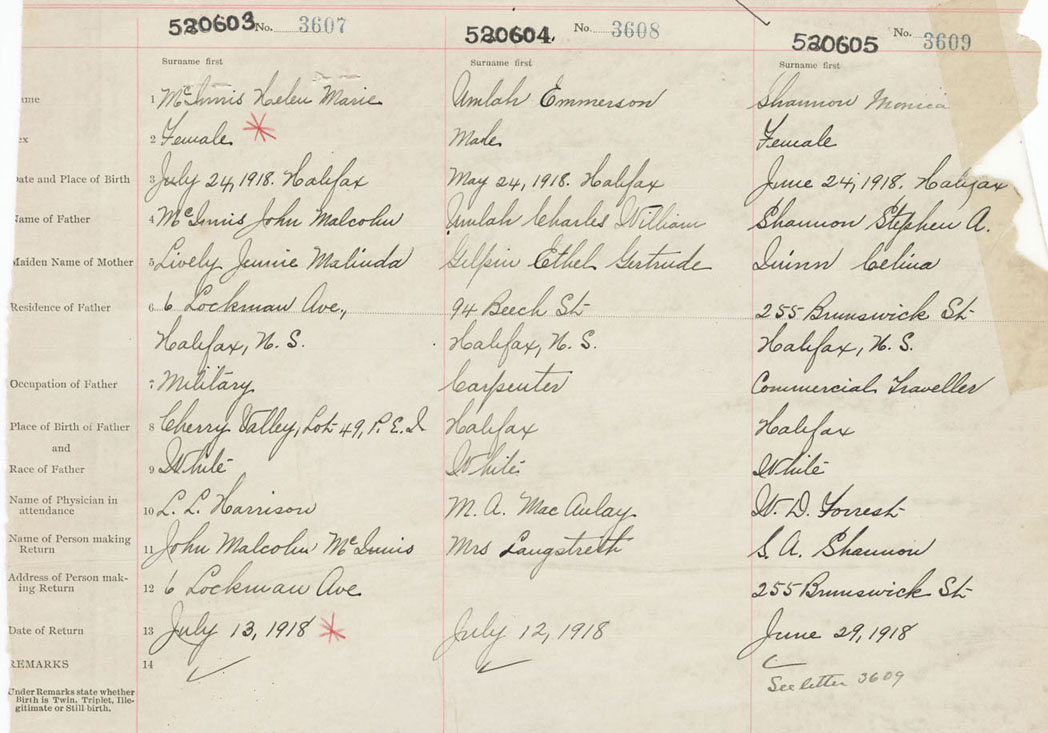 520603 No. 3607 520604 No. 3608 520605 No. 3609
Surname first Surname first Surname first
ame 1 McInnis Helen Marie Amlah Emmerson Shannon Monica
ex 2 Female Male Female
Date and Place of Birth 3 July 24, 1918. Halifax May 24, 1918. Halifax June 24, 1918. Halifax
Name of Father 4 McInnis John Malcolm Amlah Charles William Shannon Stephen A.
Maiden Name of Mother 5 Lively Jennie Malinda Gilpin Ethel Gertrude Quinn Celina
Residence of Father 6 6 Lockman Ave., 94 Beech St 255 Brunswick St
Halifax, N. S. Halifax, N. S. Halifax, N. S.
Occupation of Father 7 Military Carpenter Commercial Traveller
Place of Birth of Father 8 Cherry Valley, Lot 49, P. E. I Halifax Halifax
and
Race of Father 9 White White White
Name of Physician in
attendance 10 L. L. Harrison M. A. MacAulay W. D. Forrest
Name of Person making
Return 11 John Malcolm McInnis Mrs Langstreth S. A. Shannon
Address of Person mak-
ing Return 12 6 Lockman Ave 255 Brunswick St
Date of Return 13 July 13, 1918 July 12, 1918 June 29, 1918
REMARKS 14
See letter 3609
Under Remarks state whether
Birth is Twin, Triplet, Ille-
gitimate or Still-birth.